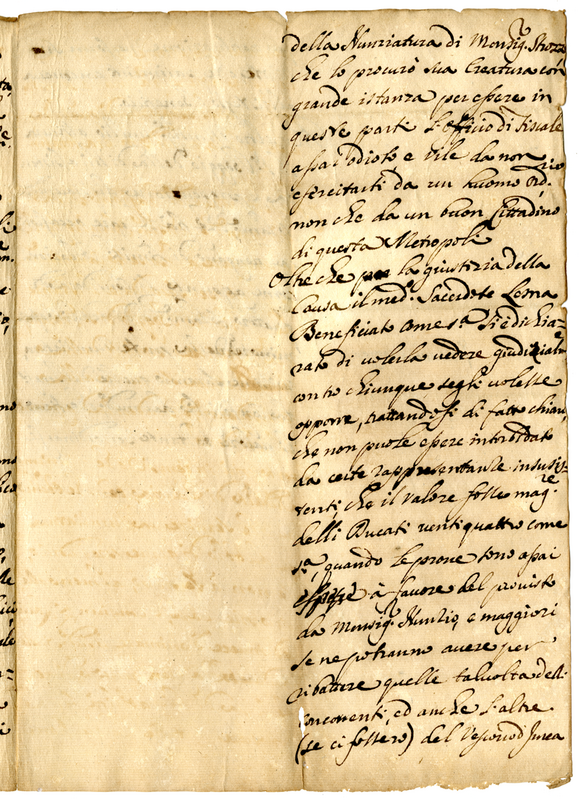 della Nunziatura di Monsig.r Strozzi
che lo procurò sua Creatura con
grande istanza per essere in
queste parti l'officio di Fiscale
assai odioso, e vile da non
esercitarsi da un huomo ord.rio
non che da un buon Cittadino
di questa Metropoli
Oltre che la giustizia della
Causa il med.o Sacerdote
Beneficiato come s.a si è dichia=
rato di volerla vedere giudizialm.e
contro chiunque segli volesse
opporre, trattandosi di fatto chiaro,
che non puole essere intorbidato
da certe rappresentanze insussis=
tenti, che il valore fosse mag.re
delli Ducati ventiquattro come
s.a, quando le prove sono assai
à favore del provisto
da Monsig.r Nunzio, e maggiori
se ne potranno avere per
ribattere quelle talvolta delli
concorrenti, ed anche l'altre
(se ci fossero) del Vescovo di